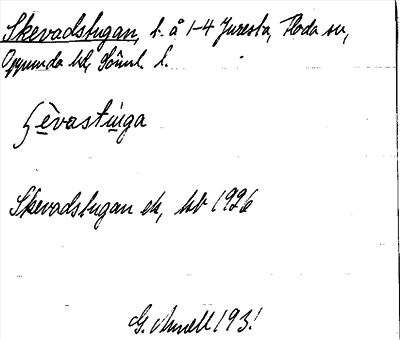 Skevadstugan, t. å 1-4 Juresta, Floda sn,
Oppunda hd, Söml. l.
ʃèvastùga
Skevadstugan ek, kbl 1926
G. Annell 1931